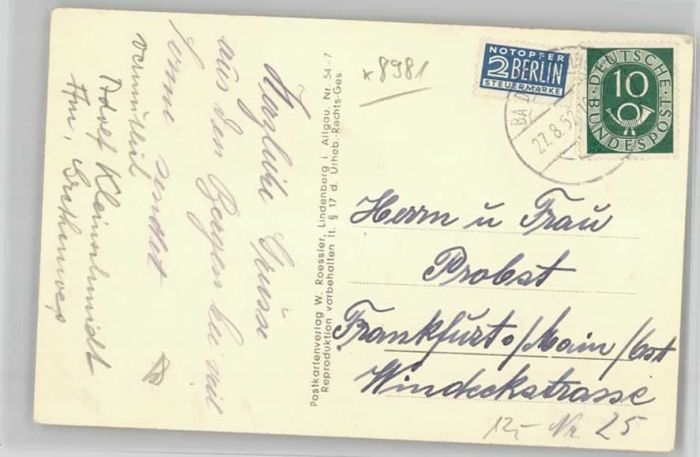 x 8981
NOTOPFER
2 BERLIN
STEUERMARKE
DEUTSCHE
BUNDESPOST
10
27.8.52
Herzliche Grüsse
aus den Bergen bei
Sonne sendet
Adolf Kleinschmidt
Postkartenverlag W. Roessler, Lindenberg i. Allgäu, Nr. 54-7
Reproduktion vorbehalten lt. § 17 d. Urheb.-Rechts-Ges.
Herrn u Frau
Probst
Frankfurt o/Main/Ost
Windeckstrasse
12,- Nr. 25